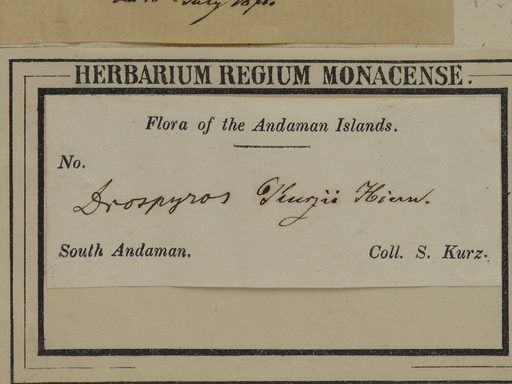 July
HERBARIUM REGIUM MONACENSE.
Flora of the Andaman Islands.
No.
Diospyros Kurzii Hiern.
South Andaman.
Coll. S. Kurz.